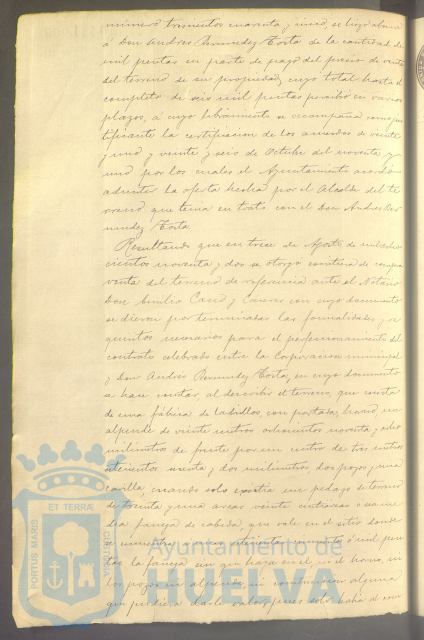 número trescientos cuarenta y cinco, se hizo abono
á Don Andres Bermudez Costa de la cantidad de
mil pesetas en parte de pago del precio de venta
del terreno de su propiedad, cuyo total hasta el
completo de seis mil pesetas percibió en varios
plazos, á cuyo libramiento se acompaña como jus
tificante la certificacion de los acuerdos de veinte
y uno y veinte y seis de Octubre del noventa y
uno por los cuales el Ayuntamiento acordó
admitir la oferta hecha por el Alcalde del te
rreno que tenia en trato con el Don Andres Ber
mudez Costa.
Resultando que en trece de Agosto de mil ocho
cientos noventa y dos se otorgó escritura de compra
venta del terreno de referencia ante el Notario
Don Emilio Cano y Caceres con cuyo documento
se dieron por terminadas las formalidades y re
quisitos necesarios para el perfeccionamiento del
contrato celebrado entre la Corporacion municipal
y Don Andrés Bermudez Costa, en cuyo documento
se hace constar, al describir el terreno, que consta
de una fábrica de ladrillos, con portada, horno, un
alpende de veinte metros ochocientos noventa y ocho
milimetros de frente por un centro de tres metros
y dos milimetros dos pozos y una
casilla, cuando solo existia un pedazo de terreno
de treinta y una areas veinte
fanega de cabida, que vale en el sitio donde
se encuentra ó mil pese
tas la fanega, sin que haya en él, ni horno, ni
los pozos, ni alpende, ni construccion alguna
que pudiera darle valor, pues solo habia
ET TERRAE
PORTUS MARIS
CUSTODIA
Ayuntamiento de
HUELVA